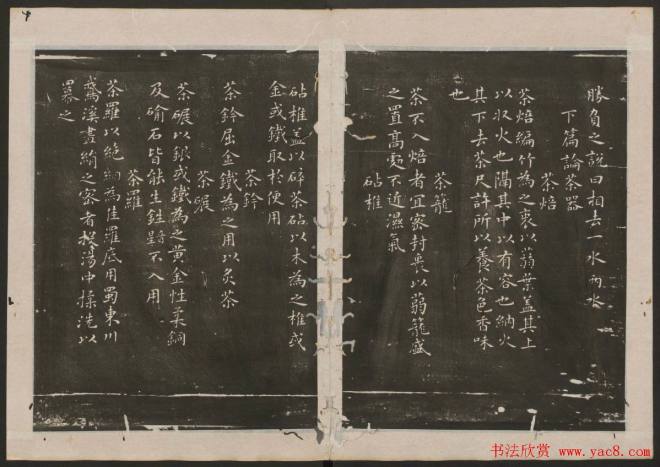 勝負之說曰相去一水兩水
下篇論茶器
茶焙
茶焙編竹為之裹以蒻葉蓋其上
以収火也隔其中以有容也納火
其下去茶尺許所以養茶色香味
也
茶籠
茶不入焙者宜密封裹以蒻籠盛
之置高處不近濕氣
砧椎
砧椎蓋以碎茶砧以木為之椎或
金或鐵取於便用
茶鈐
茶鈐屈金鐵為之用以炙茶
茶碾
茶碾以銀或鐵為之黄金性柔銅
及鍮石皆能生鉎不入用
茶羅
茶羅以絶細為佳羅底用蜀東川
鵞溪畫絹之密者投湯中揉洗以
羃之
书法欣赏
www.yac8.com